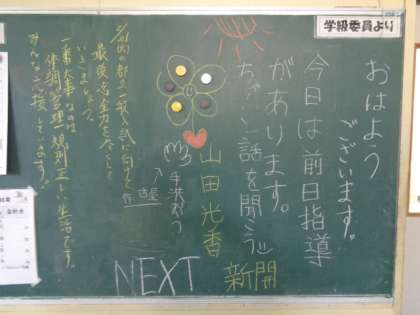 学級委員より
おはよう
ございます。
今日は前日指導
があります。
ちゃんと話を聞こう!!
山田光香
新聞
NEXT
手洗おう
都立一般入試に向けて
最後まで全力を尽くして
いきましょう。
一番大事なのは
体調管理、規則正しい生活です。
みんなで応援しています!